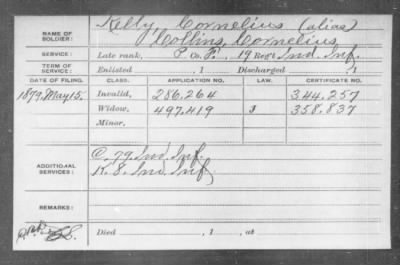 NAME OF SOLDIER: Kelly, Cornelius (alias)
Collins, Cornelius
SERVICE: Late rank, P. Co. F. 19 Reg't Ind. Inf.
TERM OF SERVICE: Enlisted , 1 Discharged 1
DATE OF FILING. CLASS. APPLICATION NO. LAW. CERTIFICATE NO.
1879. May 15. Invalid, 286.264 344.257
Widow, 497.419 358.837
Minor,
ADDITIONAL SERVICES: C. 79. Ind. Inf.
K. 8. Ind. Inf.
REMARKS:
Died , 1 , at